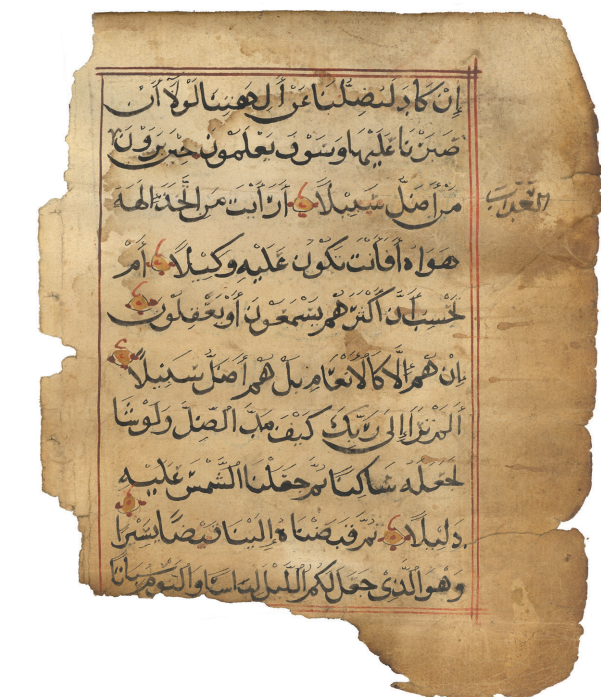 إِنْ كَادَ لَيُضِلُّنَا عَنْ آلِهَتِنَا لَوْلَا أَنْ
صَبَرْنَا عَلَيْهَا وَسَوْفَ يَعْلَمُونَ حِينَ يَرَوْنَ
العذاب
مَنْ أَضَلُّ سَبِيلًا أَرَأَيْتَ مَنِ اتَّخَذَ إِلَهَهُ
هَوَاهُ أَفَأَنْتَ تَكُونُ عَلَيْهِ وَكِيلًا أَمْ
تَحْسَبُ أَنَّ أَكْثَرَهُمْ يَسْمَعُونَ أَوْ يَعْقِلُونَ
إِنْ هُمْ إِلَّا كَالْأَنْعَامِ بَلْ هُمْ أَضَلُّ سَبِيلًا
أَلَمْ تَرَ إِلَى رَبِّكَ كَيْفَ مَدَّ الظِّلَّ وَلَوْ شَا
لَجَعَلَهُ سَاكِنًا ثُمَّ جَعَلْنَا الشَّمْسَ عَلَيْهِ
دَلِيلًا ثُمَّ قَبَضْنَاهُ إِلَيْنَا قَبْضًا يَسِيرًا
وَهُوَ الَّذِي جَعَلَ لَكُمُ اللَّيْلَ لِبَاسًا وَالنَّوْمَ سُبَاتًا